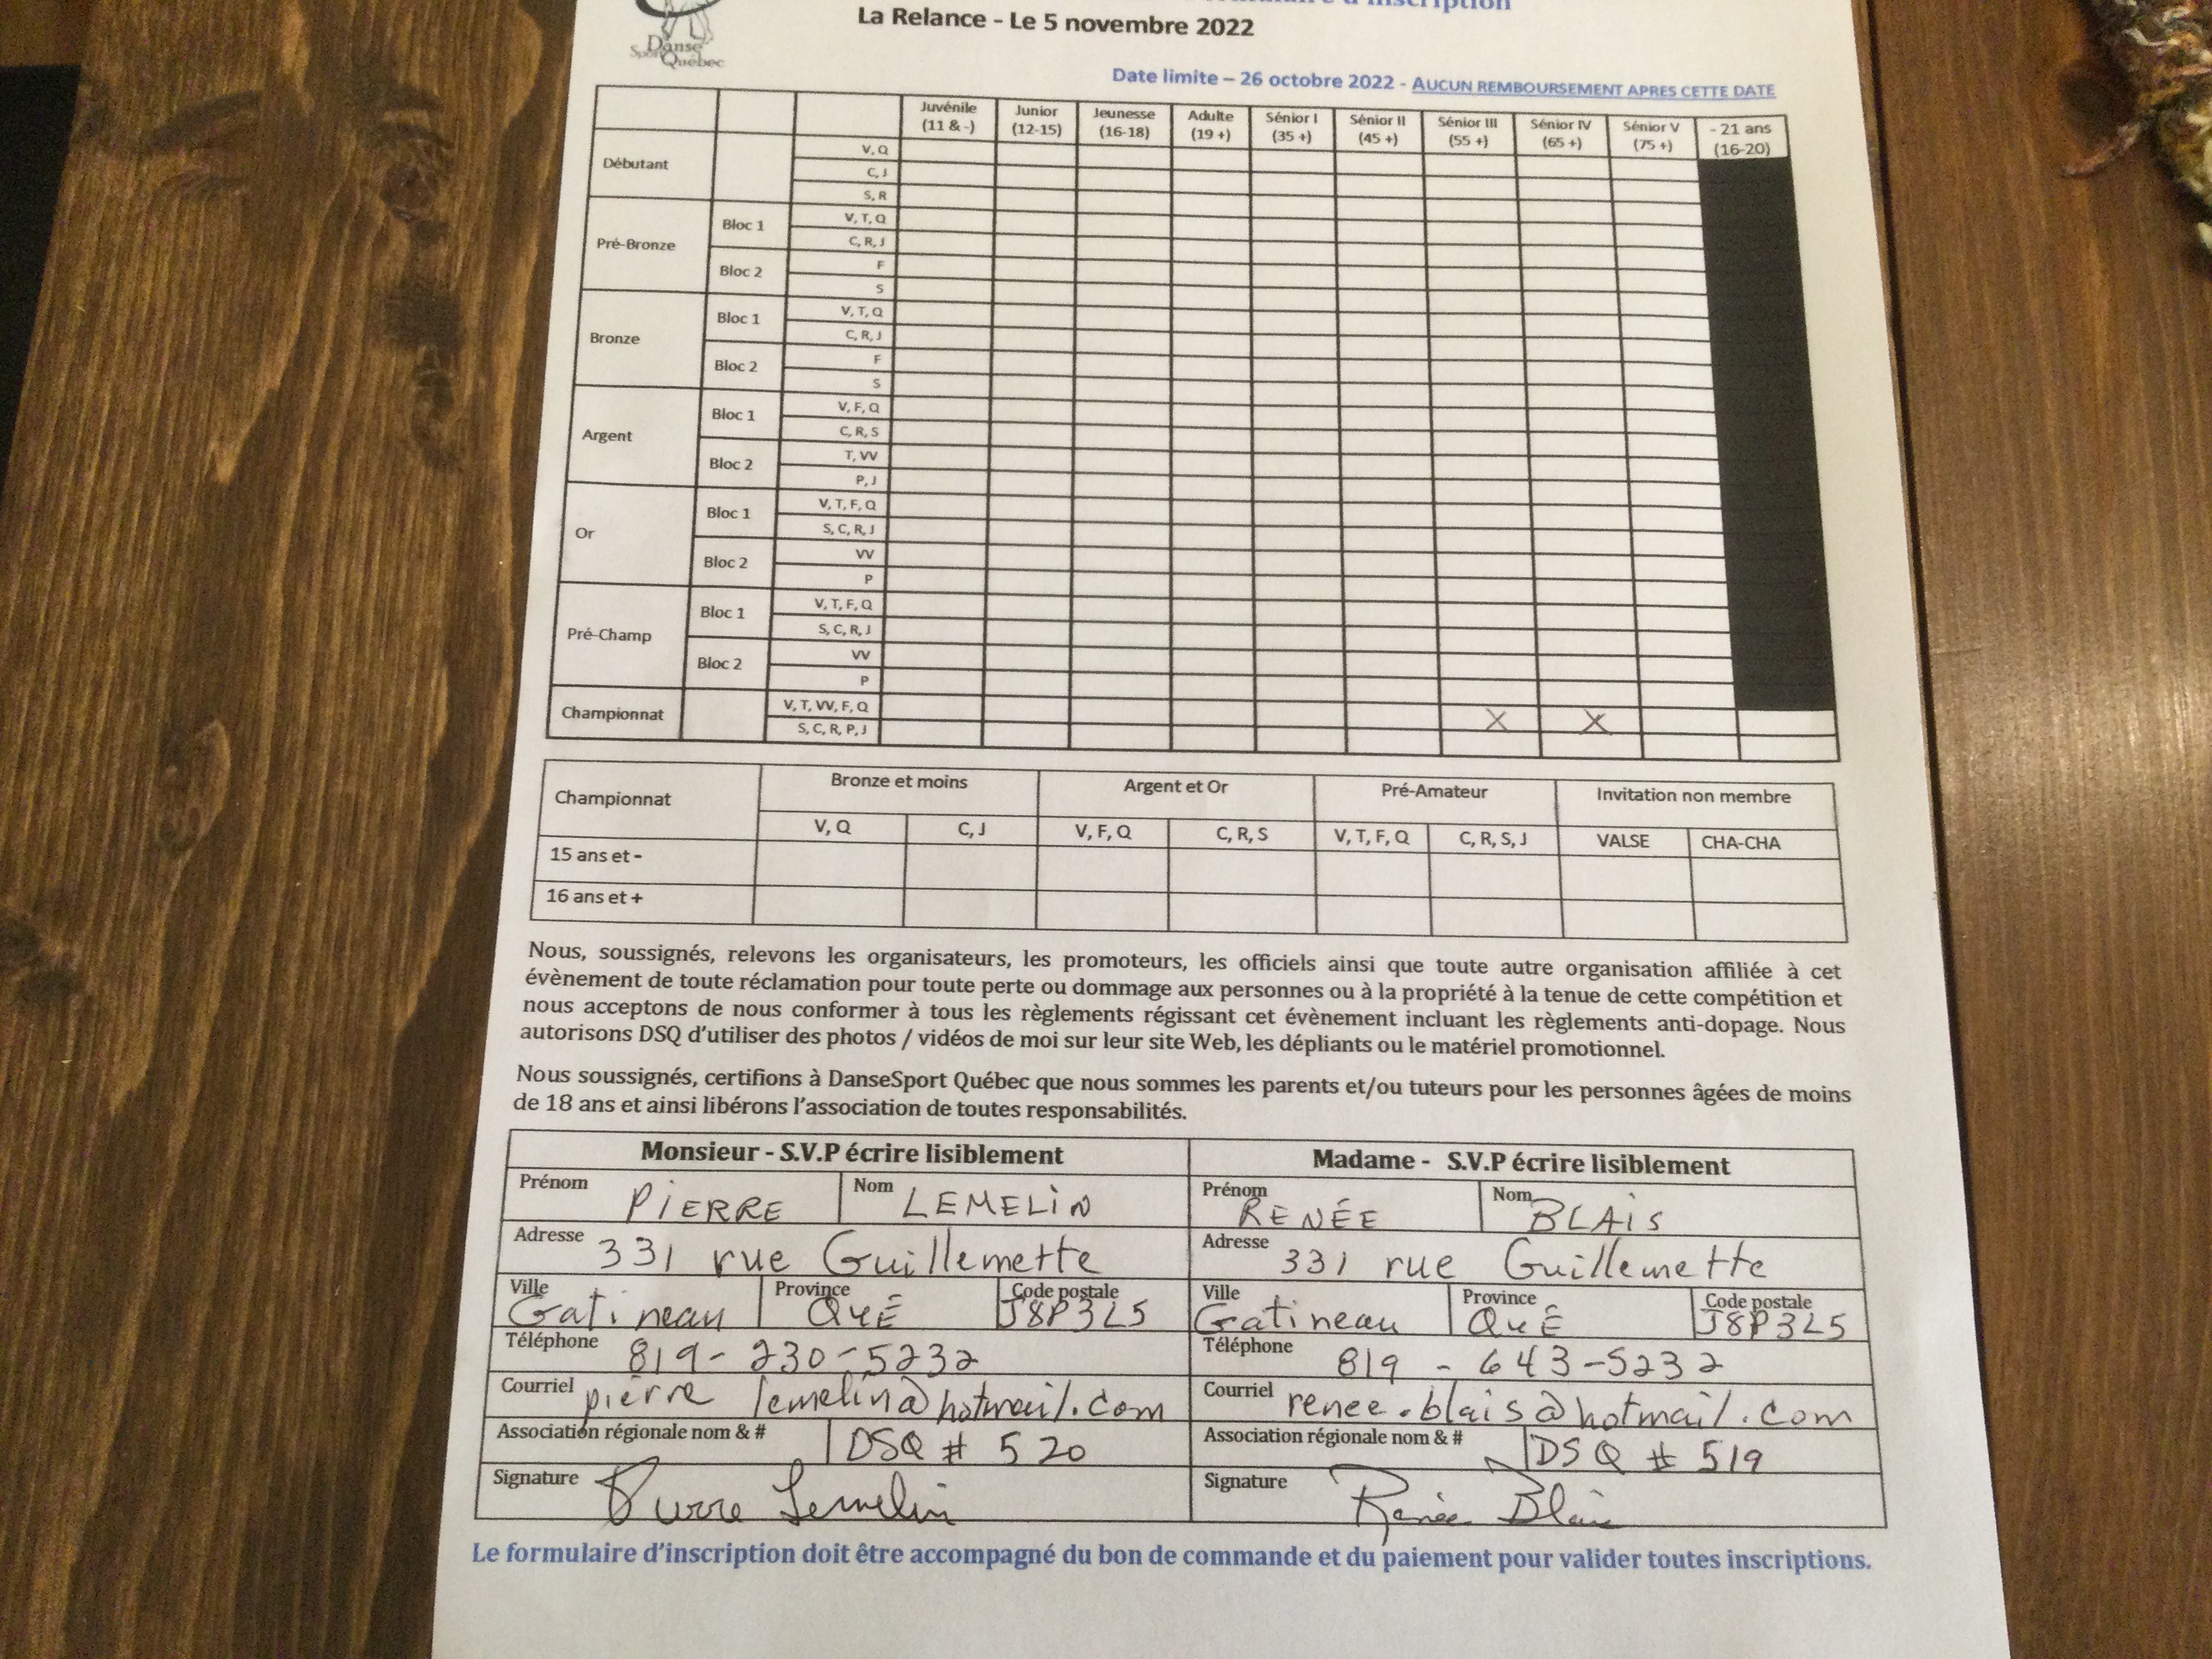 inscription
La Relance - Le 5 novembre 2022
Danse
Sport Québec
Date limite – 26 octobre 2022 - AUCUN REMBOURSEMENT APRES CETTE DATE
Juvénile (11 & -) Junior (12-15) Jeunesse (16-18) Adulte (19 +) Sénior I (35 +) Sénior II (45 +) Sénior III (55 +) Sénior IV (65 +) Sénior V (75 +) - 21 ans (16-20)
Débutant V, Q
C, J
S, R
Pré-Bronze Bloc 1 V, T, Q
C, R, J
Bloc 2 F
S
Bronze Bloc 1 V, T, Q
C, R, J
Bloc 2 F
S
Argent Bloc 1 V, F, Q
C, R, S
Bloc 2 T, VV
P, J
Or Bloc 1 V, T, F, Q
S, C, R, J
Bloc 2 VV
P
Pré-Champ Bloc 1 V, T, F, Q
S, C, R, J
Bloc 2 VV
P
Championnat V, T, VV, F, Q X X
S, C, R, P, J
Championnat Bronze et moins Argent et Or Pré-Amateur Invitation non membre
V, Q C, J V, F, Q C, R, S V, T, F, Q C, R, S, J VALSE CHA-CHA
15 ans et -
16 ans et +
Nous, soussignés, relevons les organisateurs, les promoteurs, les officiels ainsi que toute autre organisation affiliée à cet
évènement de toute réclamation pour toute perte ou dommage aux personnes ou à la propriété à la tenue de cette compétition et
nous acceptons de nous conformer à tous les règlements régissant cet évènement incluant les règlements anti-dopage. Nous
autorisons DSQ d'utiliser des photos / vidéos de moi sur leur site Web, les dépliants ou le matériel promotionnel.
Nous soussignés, certifions à DanseSport Québec que nous sommes les parents et/ou tuteurs pour les personnes âgées de moins
de 18 ans et ainsi libérons l'association de toutes responsabilités.
Monsieur - S.V.P écrire lisiblement Madame - S.V.P écrire lisiblement
Prénom PIERRE Nom LEMELIN Prénom RENÉE Nom BLAIS
Adresse 331 rue Guillemette Adresse 331 rue Guillemette
Ville Gatineau Province QuÉ Code postale J8P3L5 Ville Gatineau Province QuÉ Code postale J8P3L5
Téléphone 819-230-5232 Téléphone 819-643-5232
Courriel pierre lemelin@hotmail.com Courriel renee.blais@hotmail.com
Association régionale nom & # DSQ # 520 Association régionale nom & # DSQ # 519
Signature Pierre Lemelin Signature Renée Blais
Le formulaire d'inscription doit être accompagné du bon de commande et du paiement pour valider toutes inscriptions.